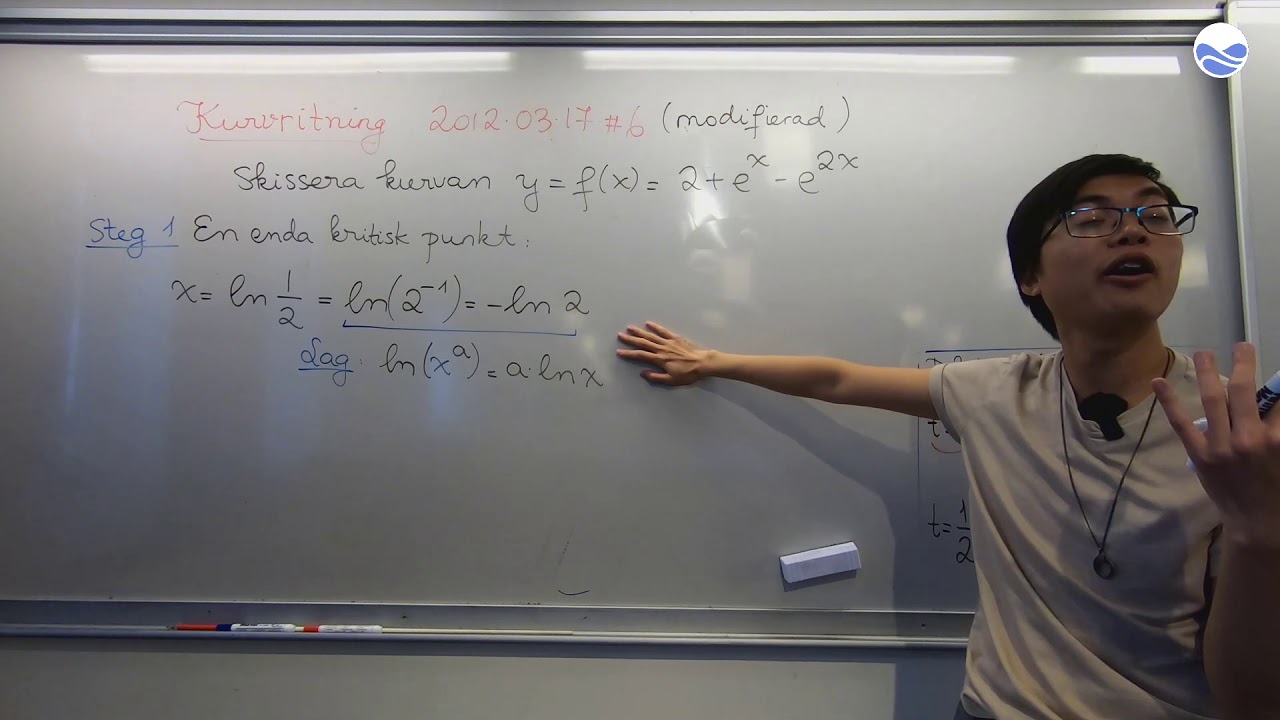 Kurvritning 2012.03.17 #6 (modifierad)
Skissera kurvan y = f(x) = 2 + e^x - e^{2x}
Steg 1 En enda kritisk punkt:
x = ln 1/2 = ln(2^{-1}) = -ln 2
Lag: ln(x^a) = a·ln x
t = 1/2